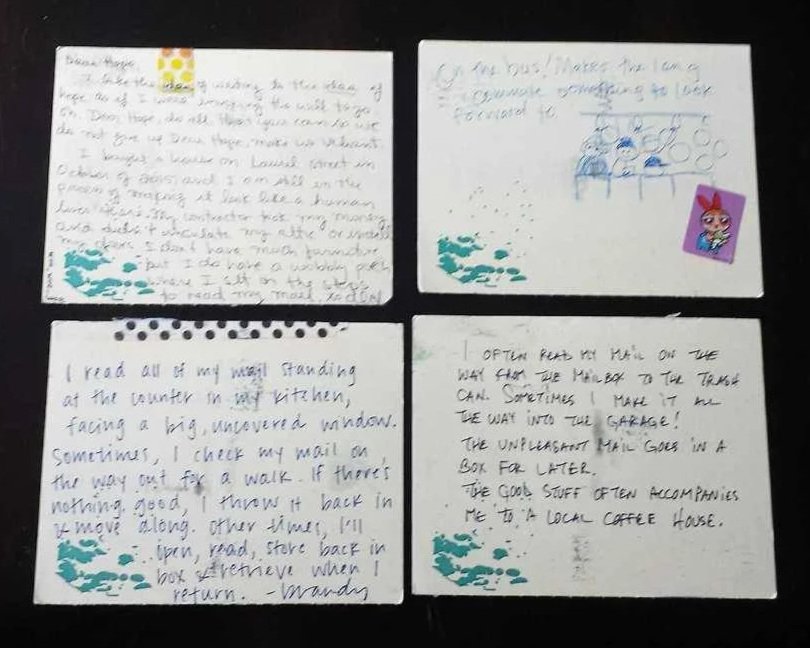 Dear Hope,
I like the idea of writing to the idea of
hope as if I were bringing the will to go
on. Dear Hope, do all that you can so we
do not give up Dear Hope, make us vibrant.
I bought a house on Laurel street in
October of 2015, and I am still in the
process of making it look like a human
lives there. My contractor took my money
and didn't insulate my attic or install
my doors. I don't have much furniture
but I do have a wobbly porch
where I sit on the steps
to read my mail.
On the bus! Makes the long
commute something to look
forward to
I read all of my mail standing
at the counter in my kitchen,
facing a big, uncovered window.
Sometimes, I check my mail on
the way out for a walk. If there's
nothing good, I throw it back in
& move along. Other times, I'll
open, read, store back in
box & retrieve when I
return. -Brandy
I OFTEN READ MY MAIL ON THE
WAY FROM THE MAILBOX TO THE TRASH
CAN. SOMETIMES I MAKE IT ALL
THE WAY INTO THE GARAGE!
THE UNPLEASANT MAIL GOES IN A
BOX FOR LATER.
THE GOOD STUFF OFTEN ACCOMPANIES
ME TO A LOCAL COFFEE HOUSE.